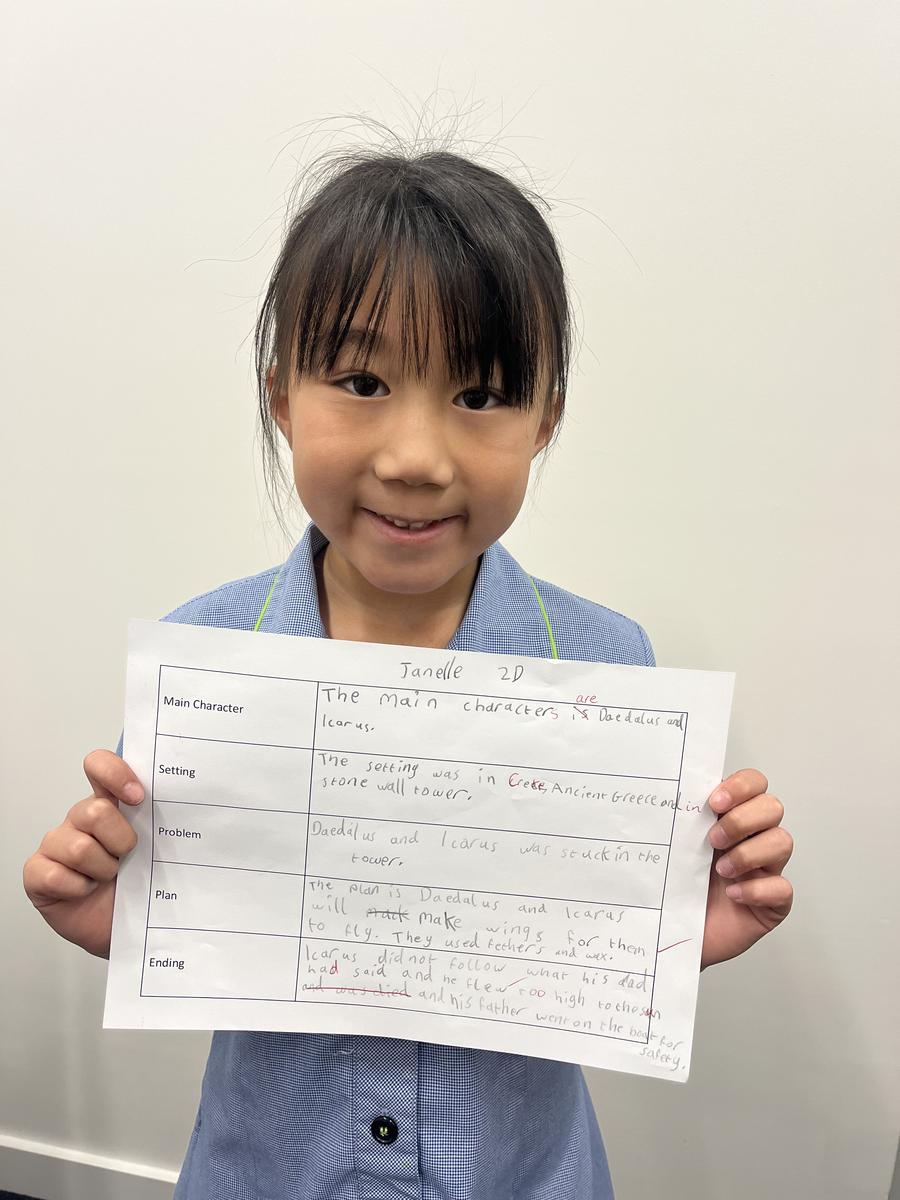 Janelle 2D
Main Character
are
The main characters is Daedalus and
Icarus.
Setting
The setting was in Crete, Ancient Greece and in
stone wall tower.
Problem
Daedalus and Icarus was stuck in the
tower.
Plan
The plan is Daedalus and Icarus
will make wings for them
to fly. They used fethers and wax.
Ending
Icarus did not follow what his dad
had said and he flew too high to the sun
and was died and his father went on the boat for
safety.